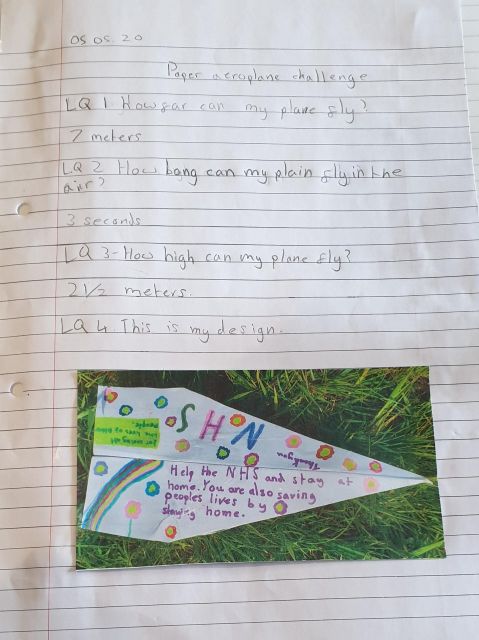 05 05 20
Paper aeroplane challenge
LQ 1 How far can my plane fly?
7 meters
LQ 2 How long can my plain fly in the
air?
3 seconds
LQ 3-How high can my plane fly?
2 1/2 meters.
LQ 4. This is my design.
NHS
Thankyou
for saving all
the lives of
people.
Help the NHS and stay at
home. You are also saving
peoples lives by
staying home.